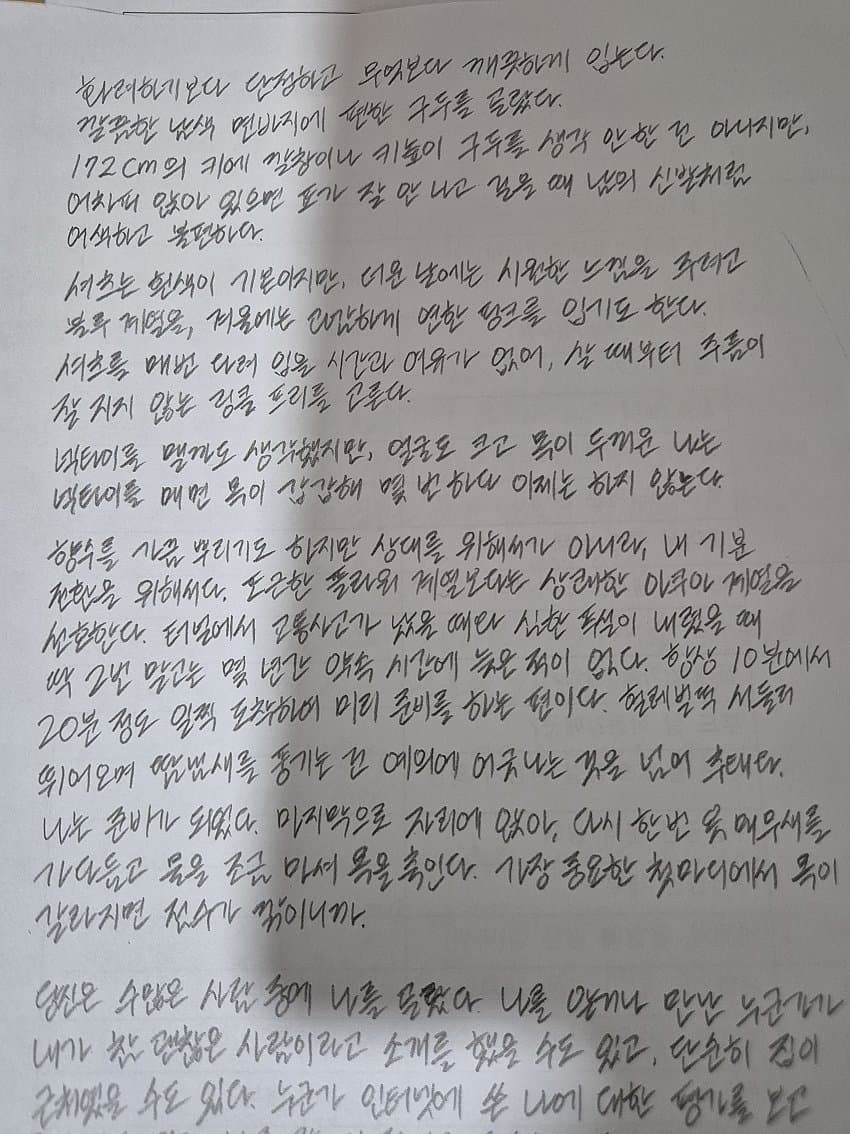 화려하기보다 단정하고 무엇보다 깨끗하게 입는다.
깔끔한 남색 면바지에 편한 구두를 골랐다.
172cm의 키에 깔창이나 키높이 구두를 생각 안 한 건 아니지만,
어차피 앉아 있으면 표가 잘 안 나고 걸을 때 남의 신발처럼
어색하고 불편하다.
셔츠는 흰색이 기본이지만, 더운 날에는 시원한 느낌을 주려고
블루 계열을, 겨울에는 과감하게 연한 핑크를 입기도 한다.
셔츠를 매번 다려 입을 시간과 여유가 없어, 살 때부터 주름이
잘 지지 않는 링클 프리를 고른다.
넥타이를 맬까도 생각했지만, 얼굴도 크고 목이 두꺼운 나는
넥타이를 매면 목이 갑갑해 몇 번 하다 이제는 하지 않는다.
향수를 가끔 뿌리기도 하지만 상대를 위해서가 아니라, 내 기분
전환을 위해서다. 포근한 플라워 계열보다는 상쾌한 아쿠아 계열을
선호한다. 터널에서 교통사고가 났을 때와 심한 폭설이 내렸을 때
딱 2번 말고는 몇 년간 약속 시간에 늦은 적이 없다. 항상 10분에서
20분 정도 일찍 도착하여 미리 준비를 하는 편이다. 헐레벌떡 서둘러
뛰어오며 땀냄새를 풍기는 건 예의에 어긋나는 것을 넘어 추태다.
나는 준비가 되었다. 마지막으로 자리에 앉아, 다시 한번 옷 매무새를
가다듬고 물을 조금 마셔 목을 축인다. 가장 중요한 첫마디에서 목이
갈라지면 점수가 깎이니까.
당신은 수많은 사람 중에 나를 골랐다. 나를 알거나 만난 누군가가
내가 참 괜찮은 사람이라고 소개를 했을 수도 있고, 단순히 집이
근처였을 수도 있다. 누군가 인터넷에 쓴 나에 대한 평가를 보고